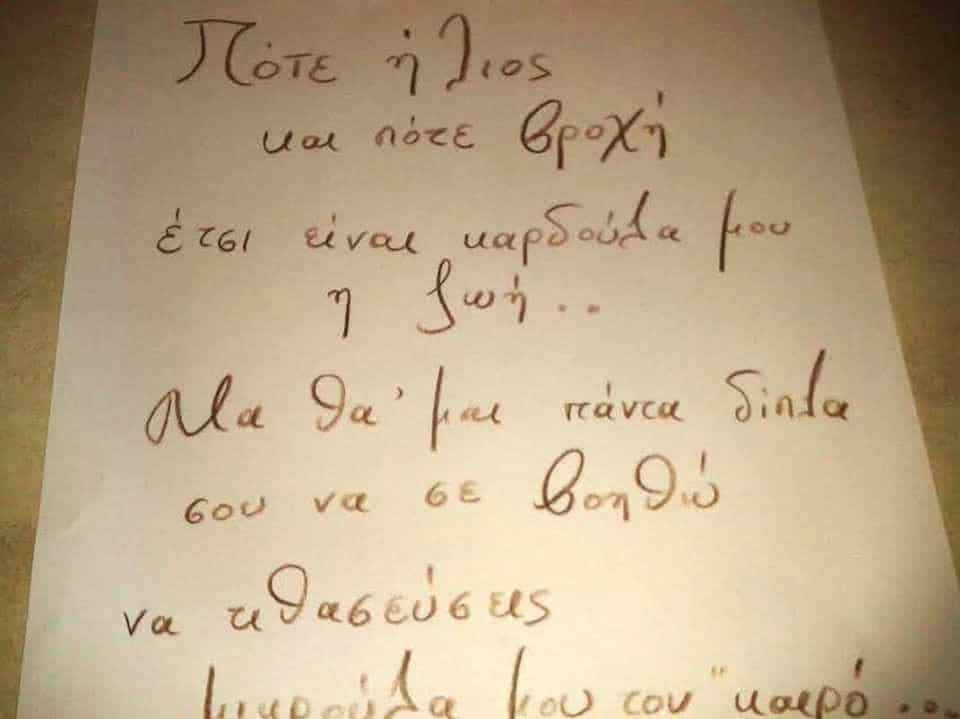 Πότε ήλιος
και πότε βροχή
έτσι είναι καρδούλα μου
η ζωή..
Μα θα 'μαι πάντα δίπλα
σου να σε βοηθώ
να τιθασεύσεις
μικρούλα μου τον "καιρό...